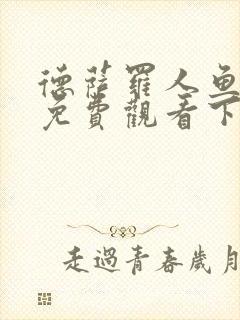 德薩羅人魚
免費觀看下
走過青春歲月